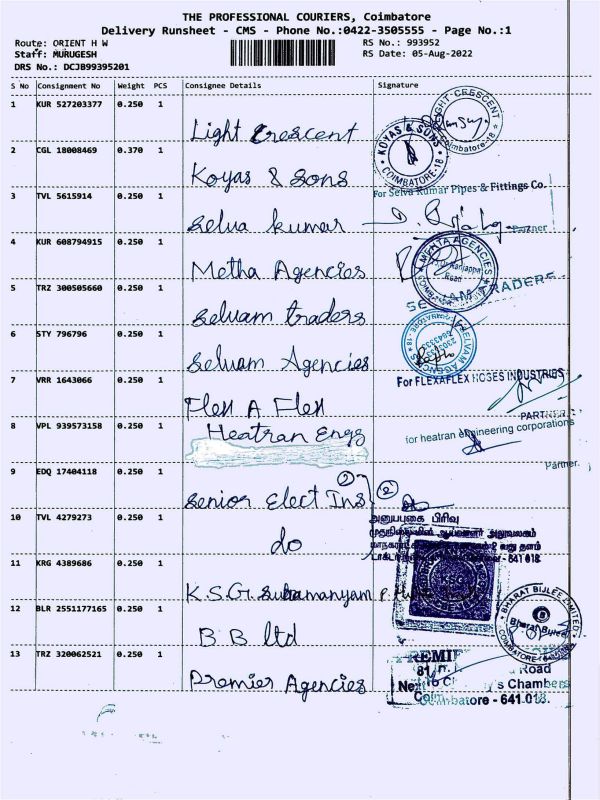 THE PROFESSIONAL COURIERS, Coimbatore
Delivery Runsheet - CMS - Phone No.:0422-3505555 - Page No.:1
Route: ORIENT H W
RS No.: 993952
Staff: MURUGESH
RS Date: 05-Aug-2022
DRS No.: DCJB99395201
S No Consignment No Weight PCS Consignee Details Signature
1 KUR 527203377 0.250 1
Light Crescent
LIGHT CRESCENT
Coimbatore-
2 CGL 18008469 0.370 1
Koyas & Sons
KOYAS & SONS
COIMBATORE-18
3 TVL 5615914 0.250 1
Selva kumar
For Selva Kumar Pipes & Fittings Co.
Partner
4 KUR 608794915 0.250 1
Metha Agencies
MEHTA AGENCIES
Road
5 TRZ 300505660 0.250 1
Selvam traders
TRADERS
6 STY 796796 0.250 1
Selvam Agencies
7 VRR 1643066 0.250 1
Flex A Flex
For FLEXAFLEX HOSES INDUSTRIES
PARTNER
8 VPL 939573158 0.250 1
Heatran Engs
for heatran engineering corporations
Partner.
9 EDQ 17404118 0.250 1
Senior Elect Ins
2
2
10 TVL 4279273 0.250 1
do
அனுபபுகை பிரிவு
641 018
11 KRG 4389686 0.250 1
K.S.G. Subramanyam
12 BLR 2551177165 0.250 1
B B ltd
BHARAT BIJLEE LIMITED
Bharat Bijlee
13 TRZ 320062521 0.250 1
Premier Agencies
Road
's Chambers
Coimbatore - 641 018.